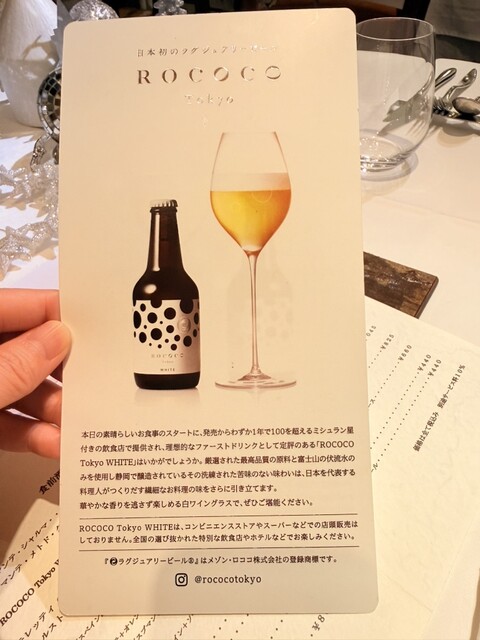 日本初のラグジュアリービール
ROCOCO
Tokyo
ROCOCO
WHITE
本日の素晴らしいお食事のスタートに、発売からわずか1年で100を超えるミシュラン星
付きの飲食店で提供され、理想的なファーストドリンクとして定評のある「ROCOCO
Tokyo WHITE」はいかがでしょうか。厳選された最高品質の原料と富士山の伏流水の
みを使用し静岡で醸造されているその洗練された苦味のない味わいは、日本を代表する
料理人がつくりだす繊細なお料理の味をさらに引き立てます。
華やかな香りを逃さず楽しめる白ワイングラスで、ぜひご堪能ください。
ROCOCO Tokyo WHITEは、コンビニエンスストアやスーパーなどでの店頭販売は
しておりません。全国の選び抜かれた特別な飲食店やホテルなどでお楽しみください。
『ラグジュアリービール®』はメゾン・ロココ株式会社の登録商標です。
@rococotokyo
¥825
¥660
¥440
¥440
価格は全て税込み 別途サービス料10%
食前酒
ROCOCO Tokyo W